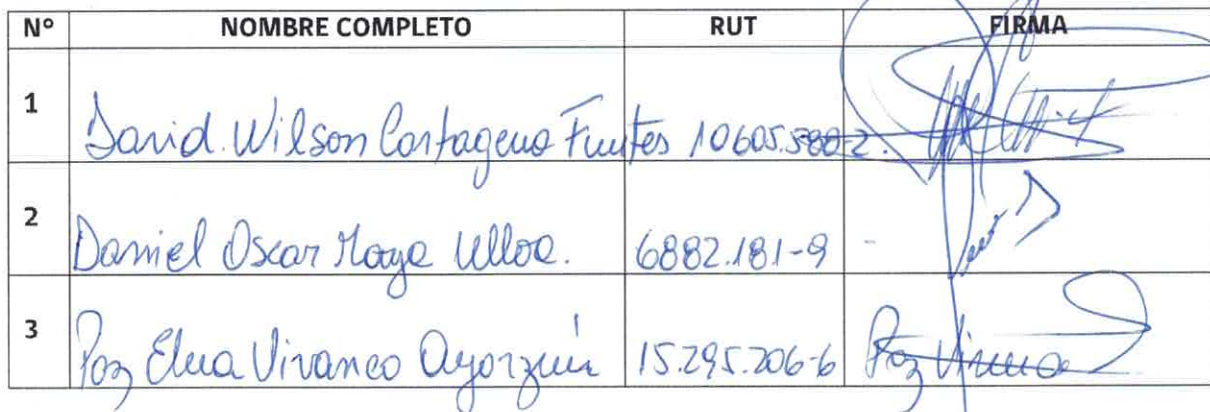 Nº NOMBRE COMPLETO RUT FIRMA
1 David. Wilson Cartagena Fuentes 10605.580-2.
2 Daniel Oscar Moya Ulloa. 6882.181-9 -
3 Paz Elena Vivanco Ayorzuin 15.295.206-6 Paz Vivanco